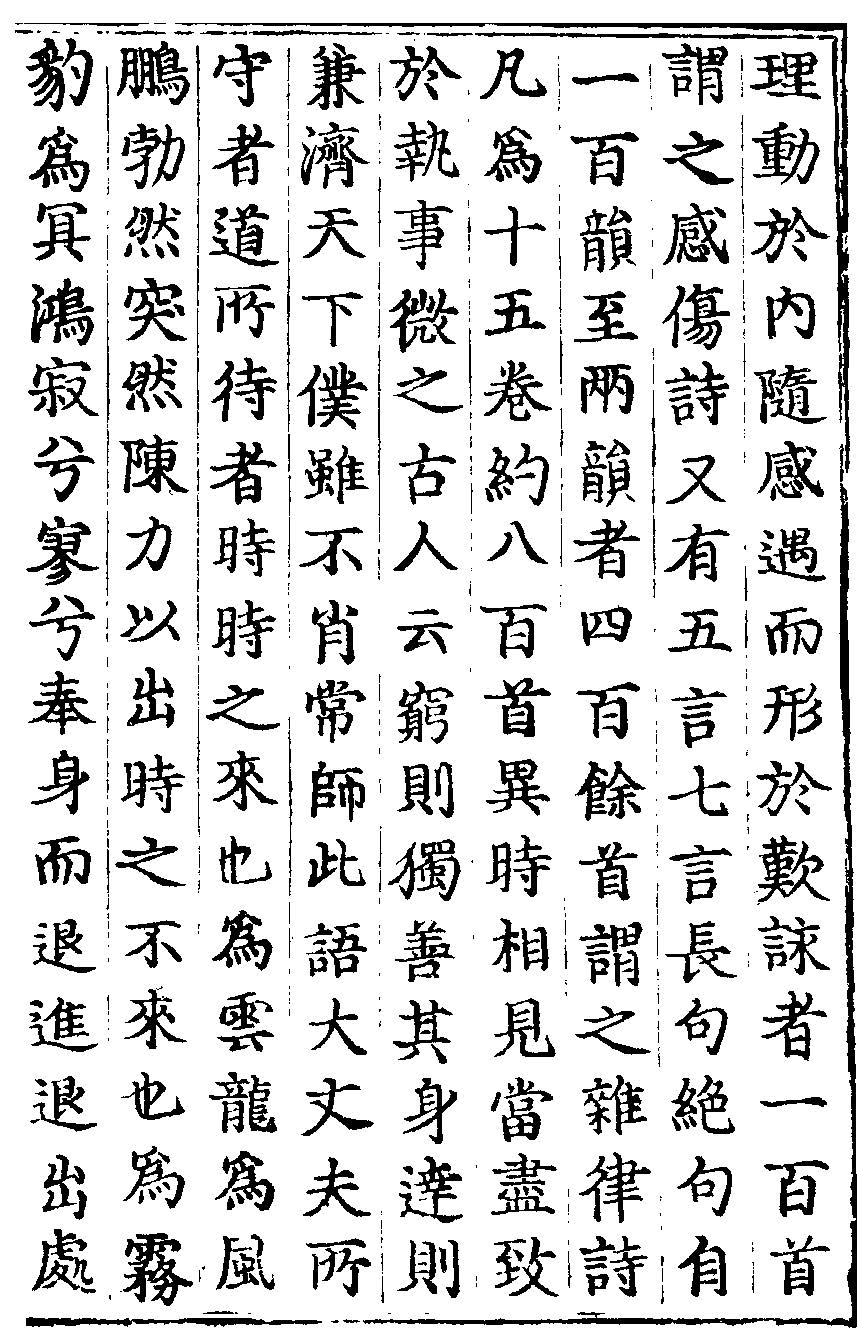 理動於內隨感遇而形於歎詠者一百首
謂之感傷詩又有五言七言長句絶句自
一百韻至兩韻者四百餘首謂之雜律詩
凡爲十五卷約八百首異時相見當盡致
於執事微之古人云窮則獨善其身達則
兼濟天下僕雖不肖常師此語大丈夫所
守者道所待者時時之來也爲雲龍爲風
鵬勃然突然陳力以出時之不來也爲霧
豹爲冥鴻寂兮寥兮奉身而退進退出處